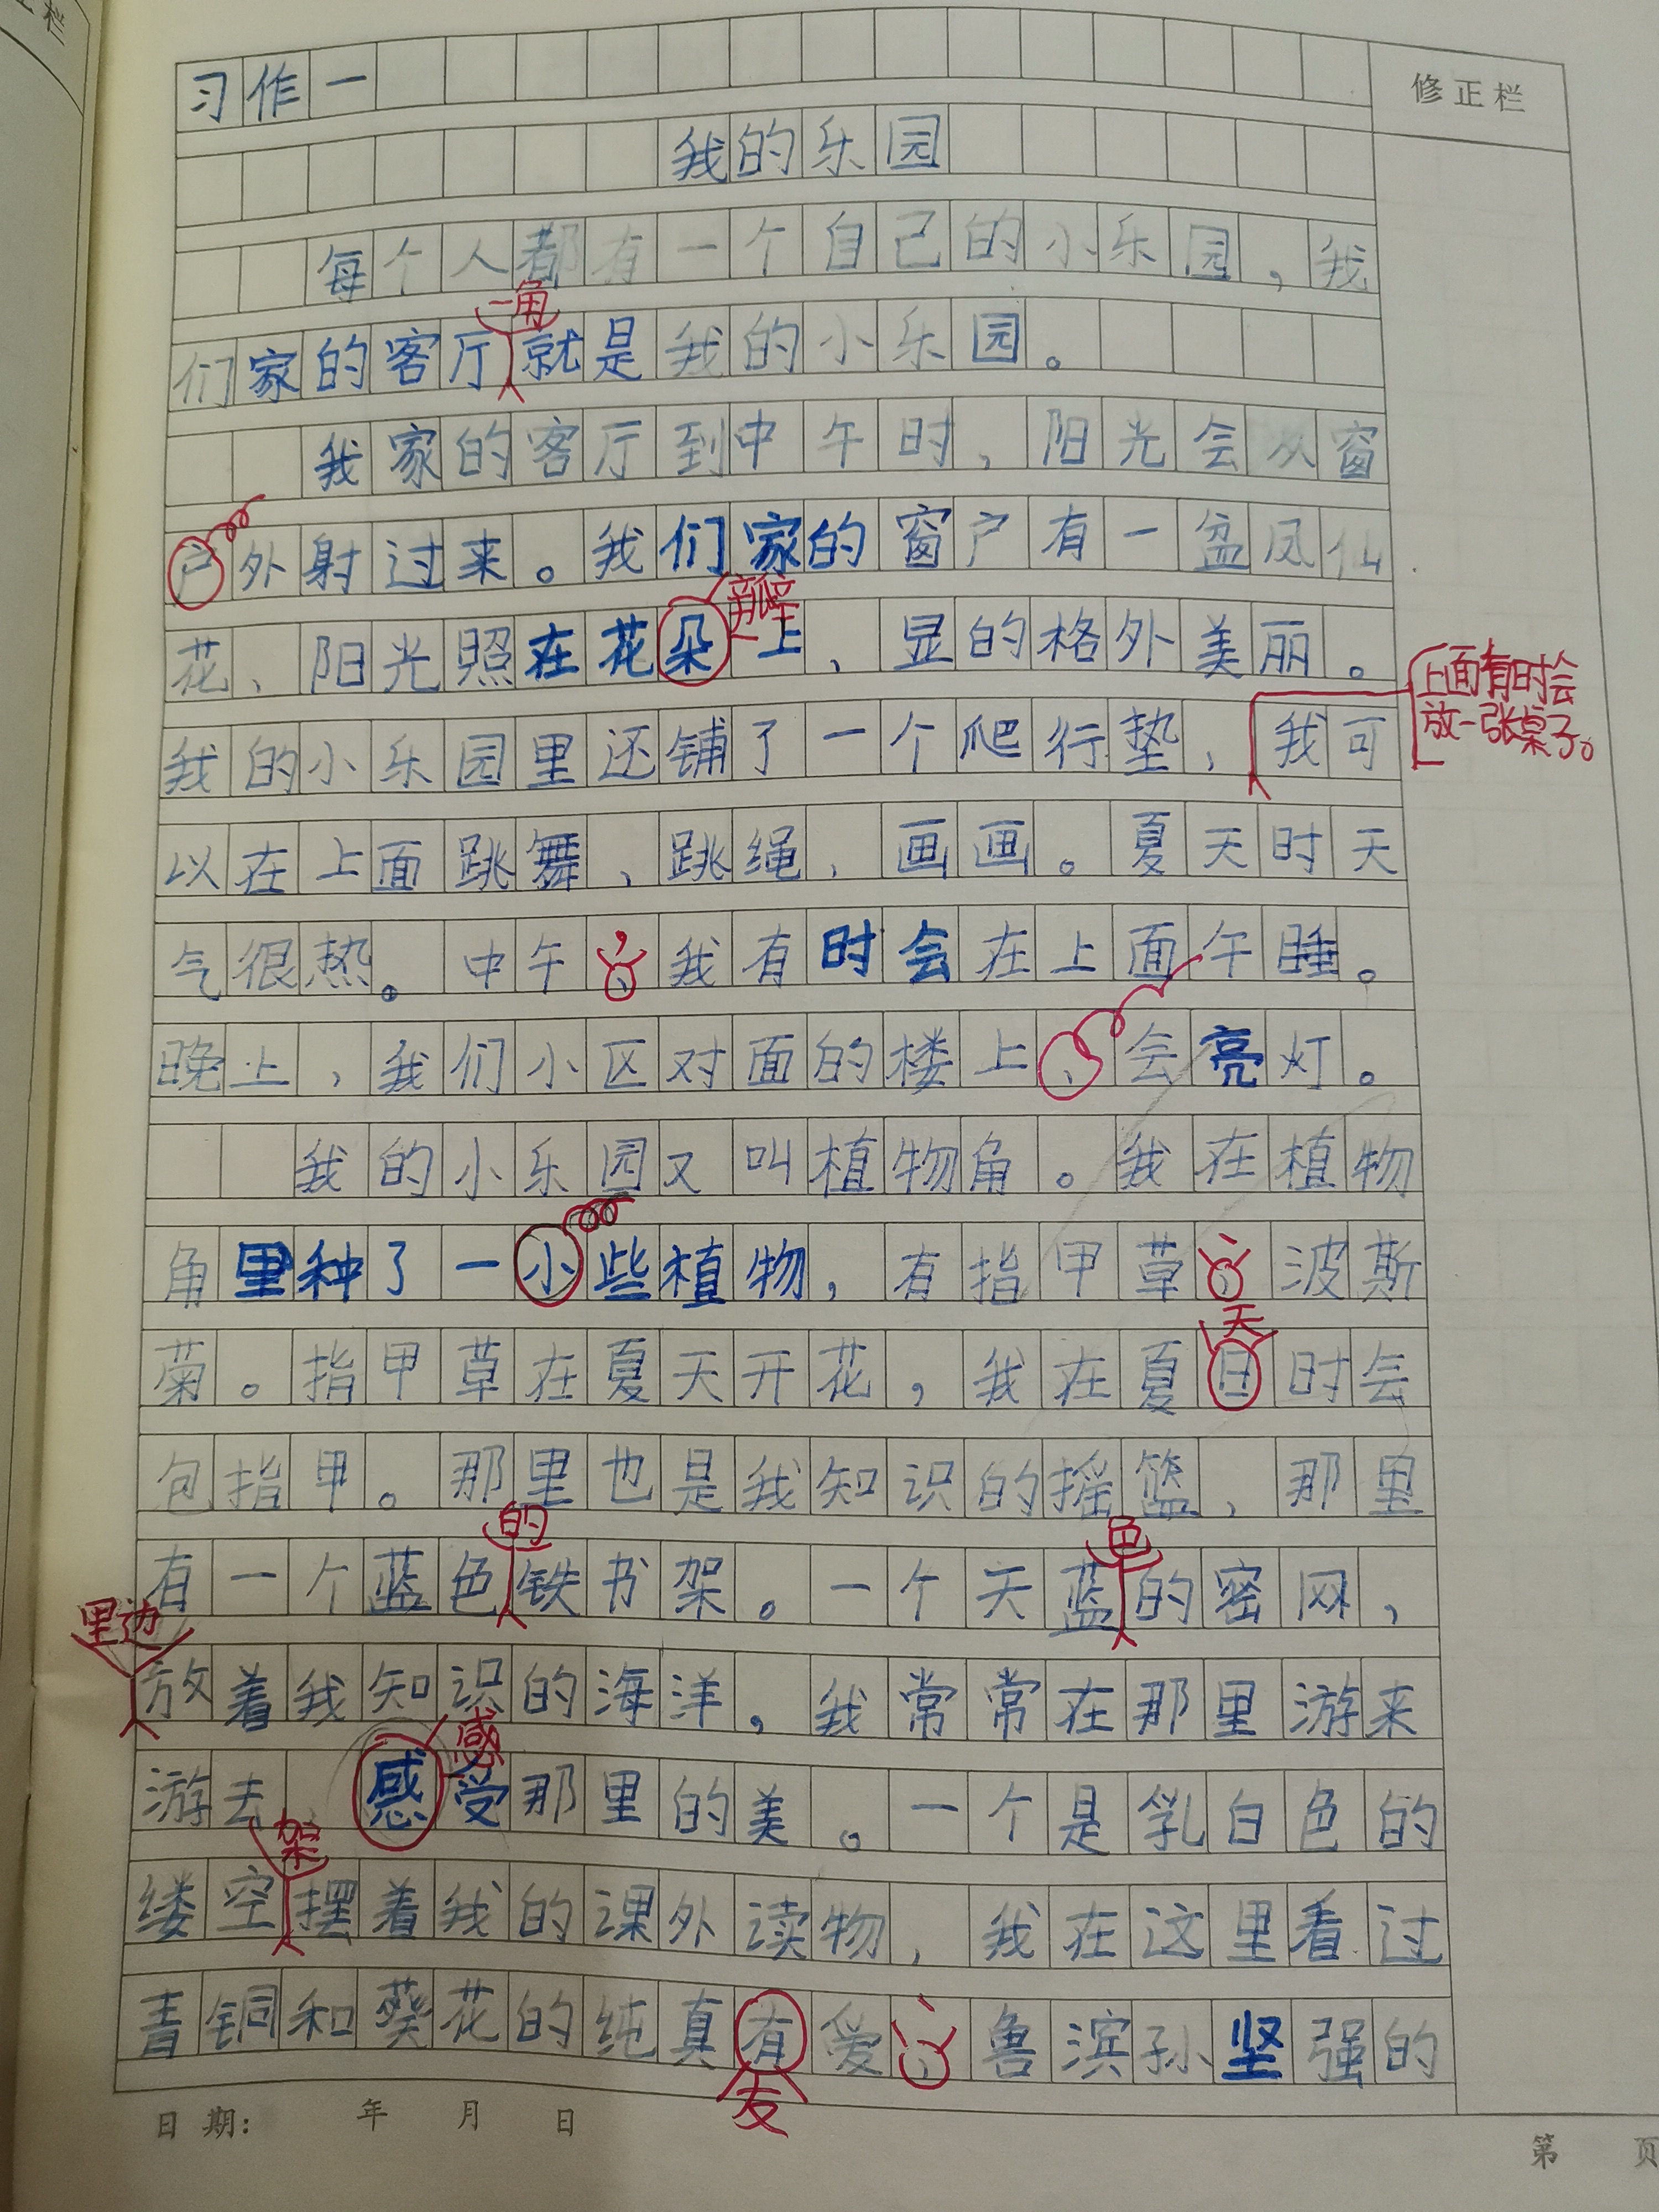 栏
习作一
修正栏
我的乐园
每个人都有一个自己的小乐园，我
一角
们家的客厅就是我的小乐园。
我家的客厅到中午时，阳光会从窗
户外射过来。我们家的窗户有一盆凤仙
瓣
花、阳光照在花朵上、显的格外美丽。
上面有时会
放一张桌子。
我的小乐园里还铺了一个爬行垫，我可
以在上面跳舞、跳绳、画画。夏天时天
气很热。中午，我有时会在上面午睡。
晚上，我们小区对面的楼上、会亮灯。
我的小乐园又叫植物角。我在植物
角里种了一小些植物，有指甲草、波斯
天
菊。指甲草在夏天开花，我在夏日时会
包指甲。那里也是我知识的摇篮，那里
的
色
有一个蓝色铁书架。一个天蓝的密网，
里边
放着我知识的海洋，我常常在那里游来
感
游去、感受那里的美。一个是乳白色的
架
缕空摆着我的课外读物，我在这里看过
青铜和葵花的纯真有爱、鲁滨孙坚强的
友
日期： 年 月 日
第 页